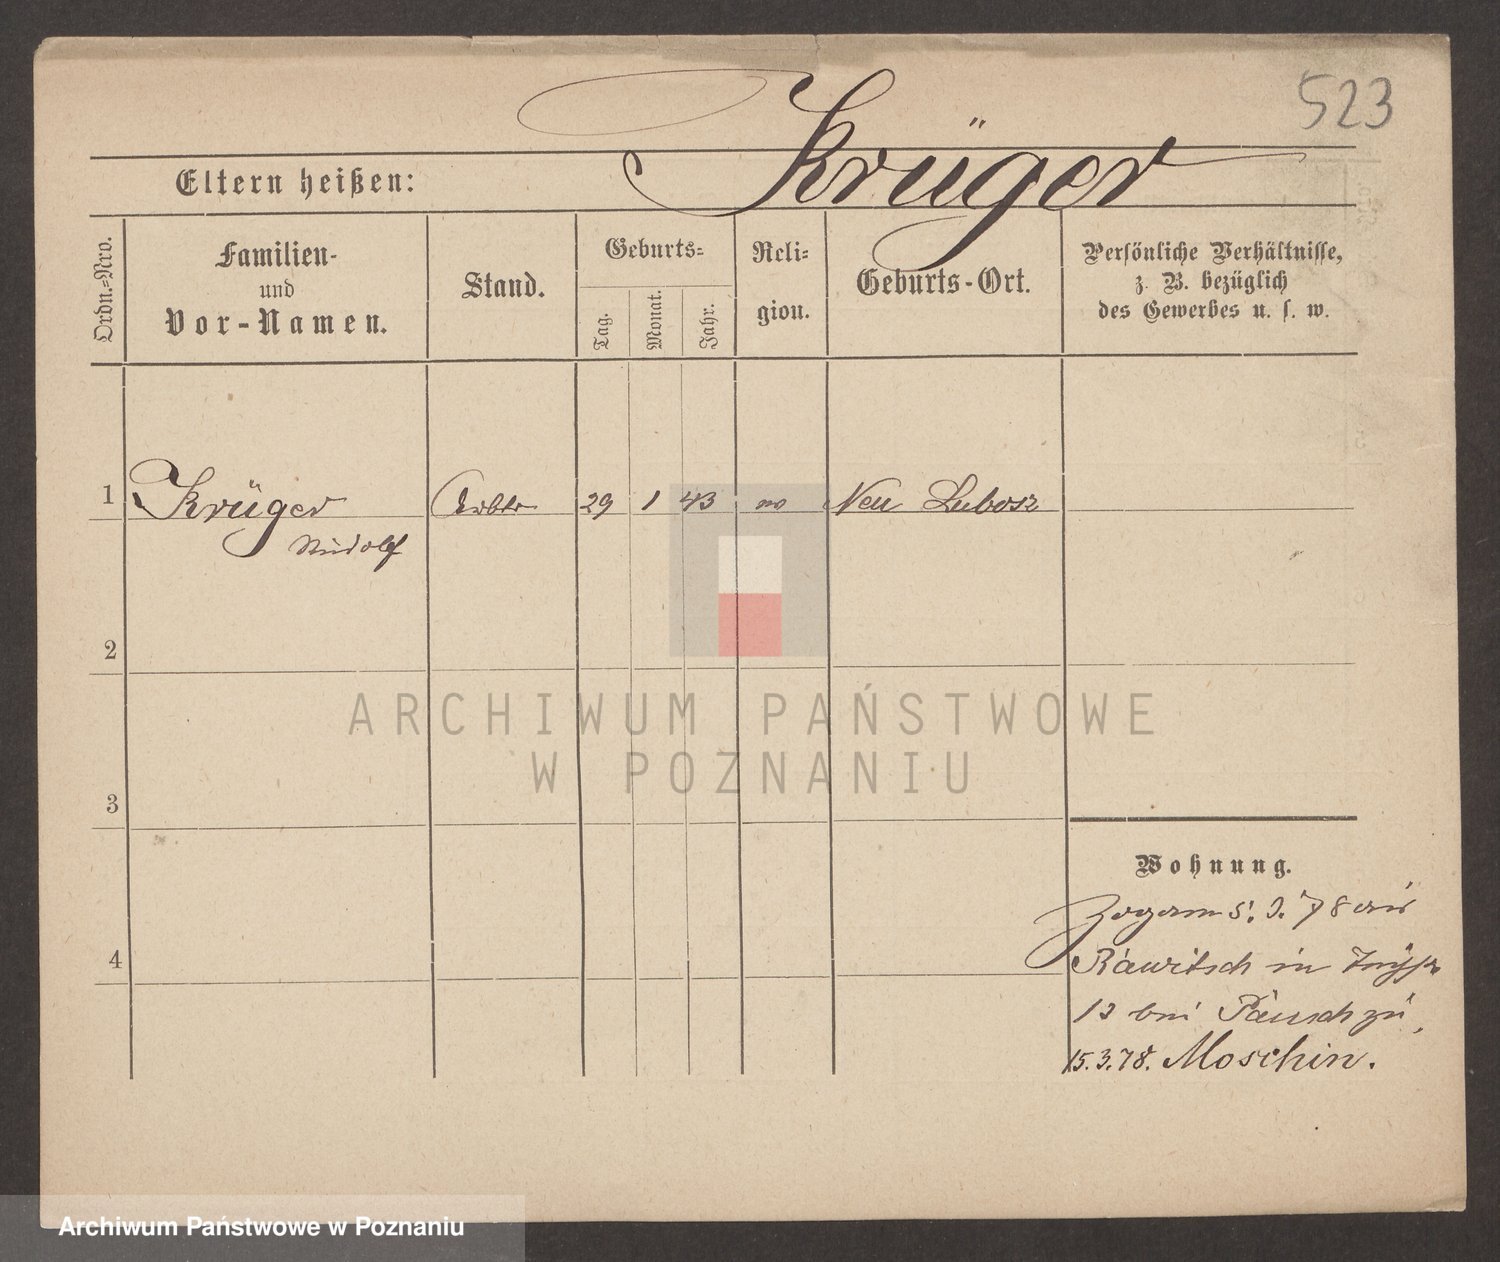 523
Krüger
Eltern heißen:
Ordn.-Nro.
Familien-
und
Vor-Namen.
Stand.
Geburts-
Tag.
Monat.
Jahr.
Reli-
gion.
Geburts-Ort.
Persönliche Verhältnisse,
z. B. bezüglich
des Gewerbes u. s. w.
1 Krüger Arbtr 29 1 43 Neu Lubosz
Rudolf
2
ARCHIWUM PAŃSTWOWE
W POZNANIU
3
Wohnung.
Zogam 5. 78 aus
4
Rawitsch in
bei zu
15.3.78. Moschin.
Archiwum Państwowe w Poznaniu